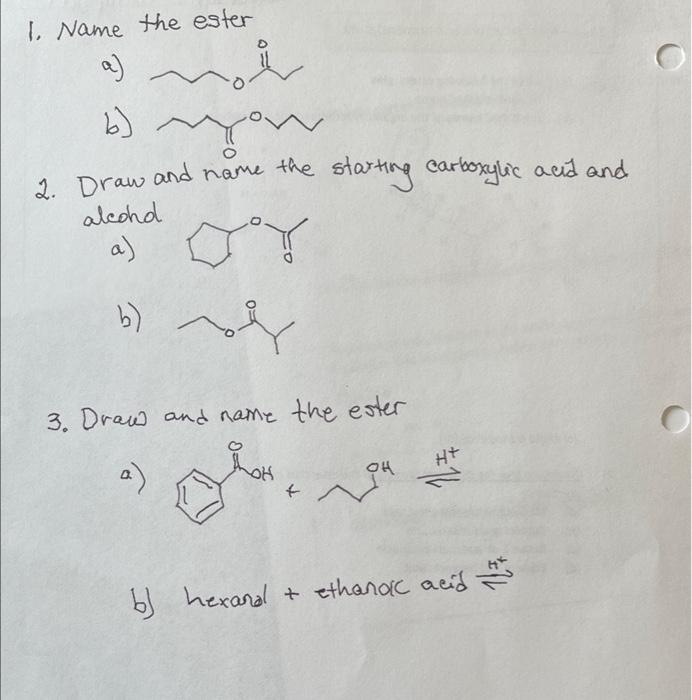 1. Name the ester
a) O O
b) O O
2. Draw and name the starting carboxylic acid and
alcohol
a) O O
b) O O
3. Draw and name the ester
a) O OH + OH H+ ⇌
b) hexanol + ethanoic acid H+ ⇌